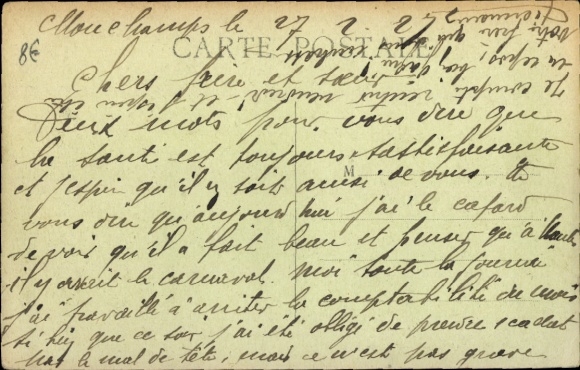 Mouchamps le 27 2 27
8€
CARTE POSTALE
Chers frère et sœur
Deux mots pour vous dire que
la santé est toujours satisfaisante
et j'espère qu'il en soit ainsi de vous. Et
vous dire qu'aujourd'hui j'ai le cafard
de voir qu'il a fait beau et penser qu'à
il y avait le carnaval. Moi toute la journée
j'ai travaillé à arrêter la comptabilité du mois
si bien que ce soir j'ai été obligé de prendre 1 cachet
par le mal de tête, mais ce n'est pas grave
Je compte
votre frère qui